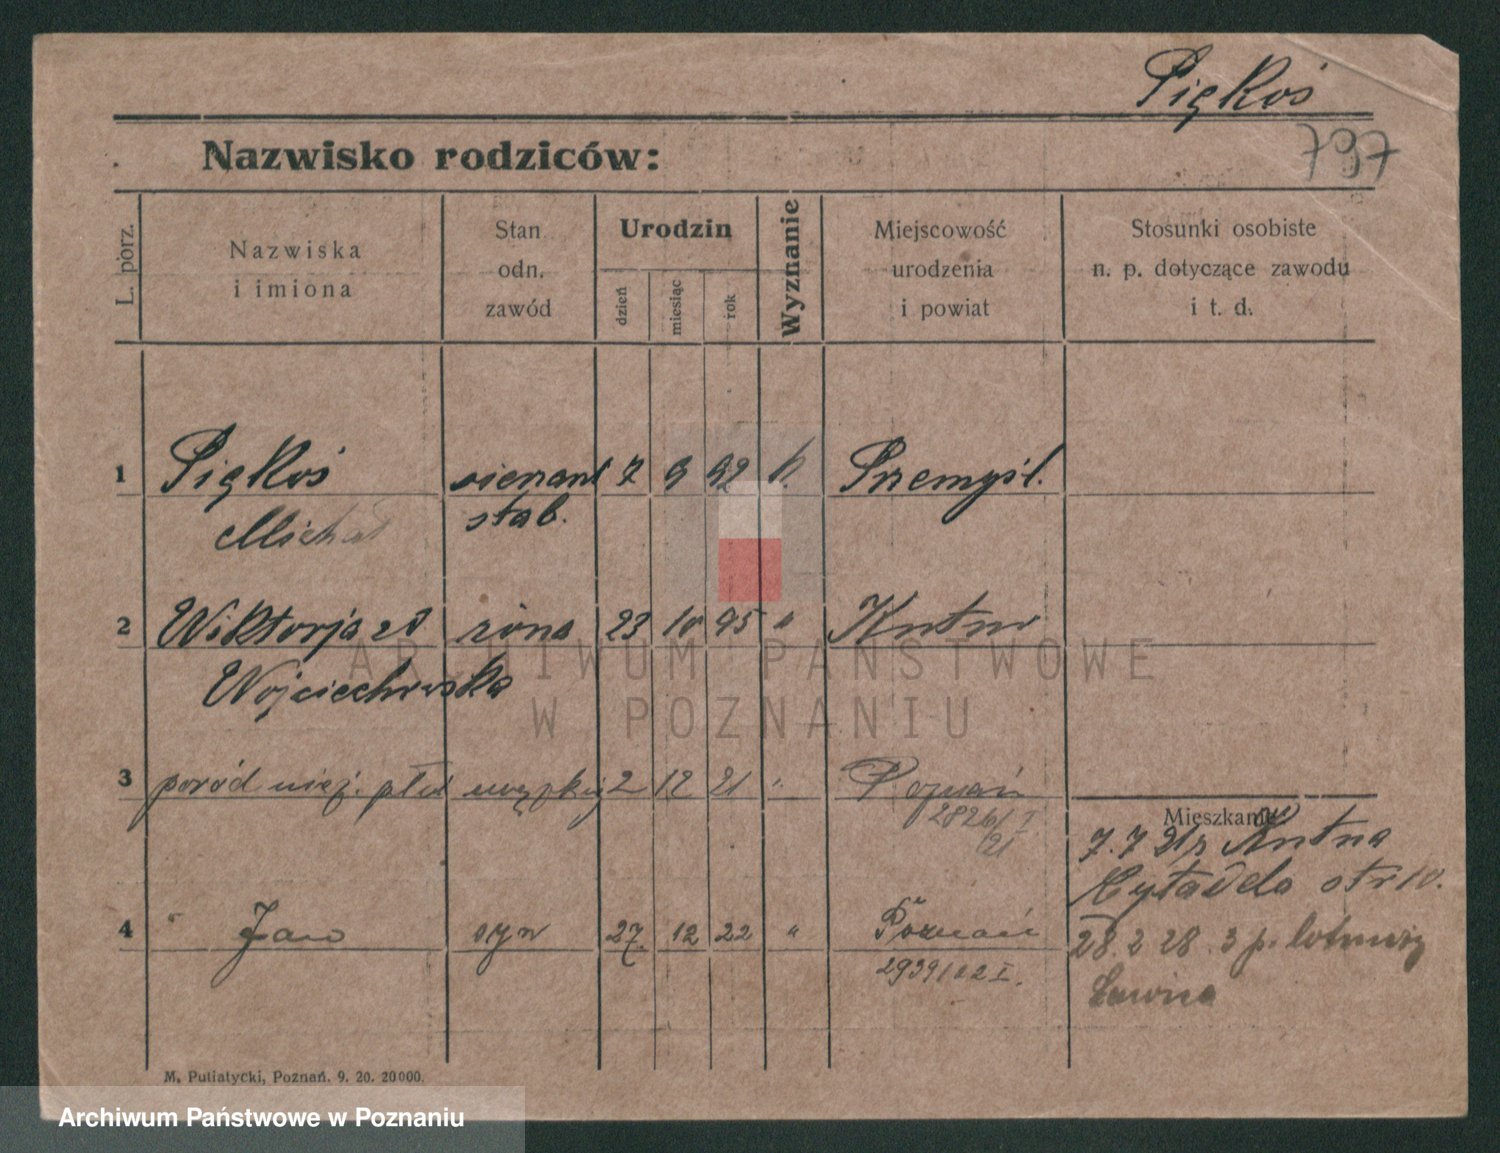 Piękoś
797
Nazwisko rodziców:
L. porz.
Nazwiska
i imiona
Stan
odn.
zawód
Urodzin
dzień
miesiąc
rok
Wyznanie
Miejscowość
urodzenia
i powiat
Stosunki osobiste
n. p. dotyczące zawodu
i t. d.
1 Piękoś sierżant 7 9 92 k. Przemyśl.
Michał stab.
2 Wiktorja zd żona 23 10 95 " Kutno
Wojciechowska
3 poród nież. płci męzkiej 2 12 21 " Poznań
2826/I
21
Mieszkanie
7. 7 21 z Kutna
Cytadela str 10.
4 " Jan syn 27. 12 22 " Poznań
2939/22 I.
28. 2 28. 3 p. lotniczy
Ławica
M. Putiatycki, Poznań. 9. 20. 20000.
ARCHIWUM PAŃSTWOWE
W POZNANIU
Archiwum Państwowe w Poznaniu